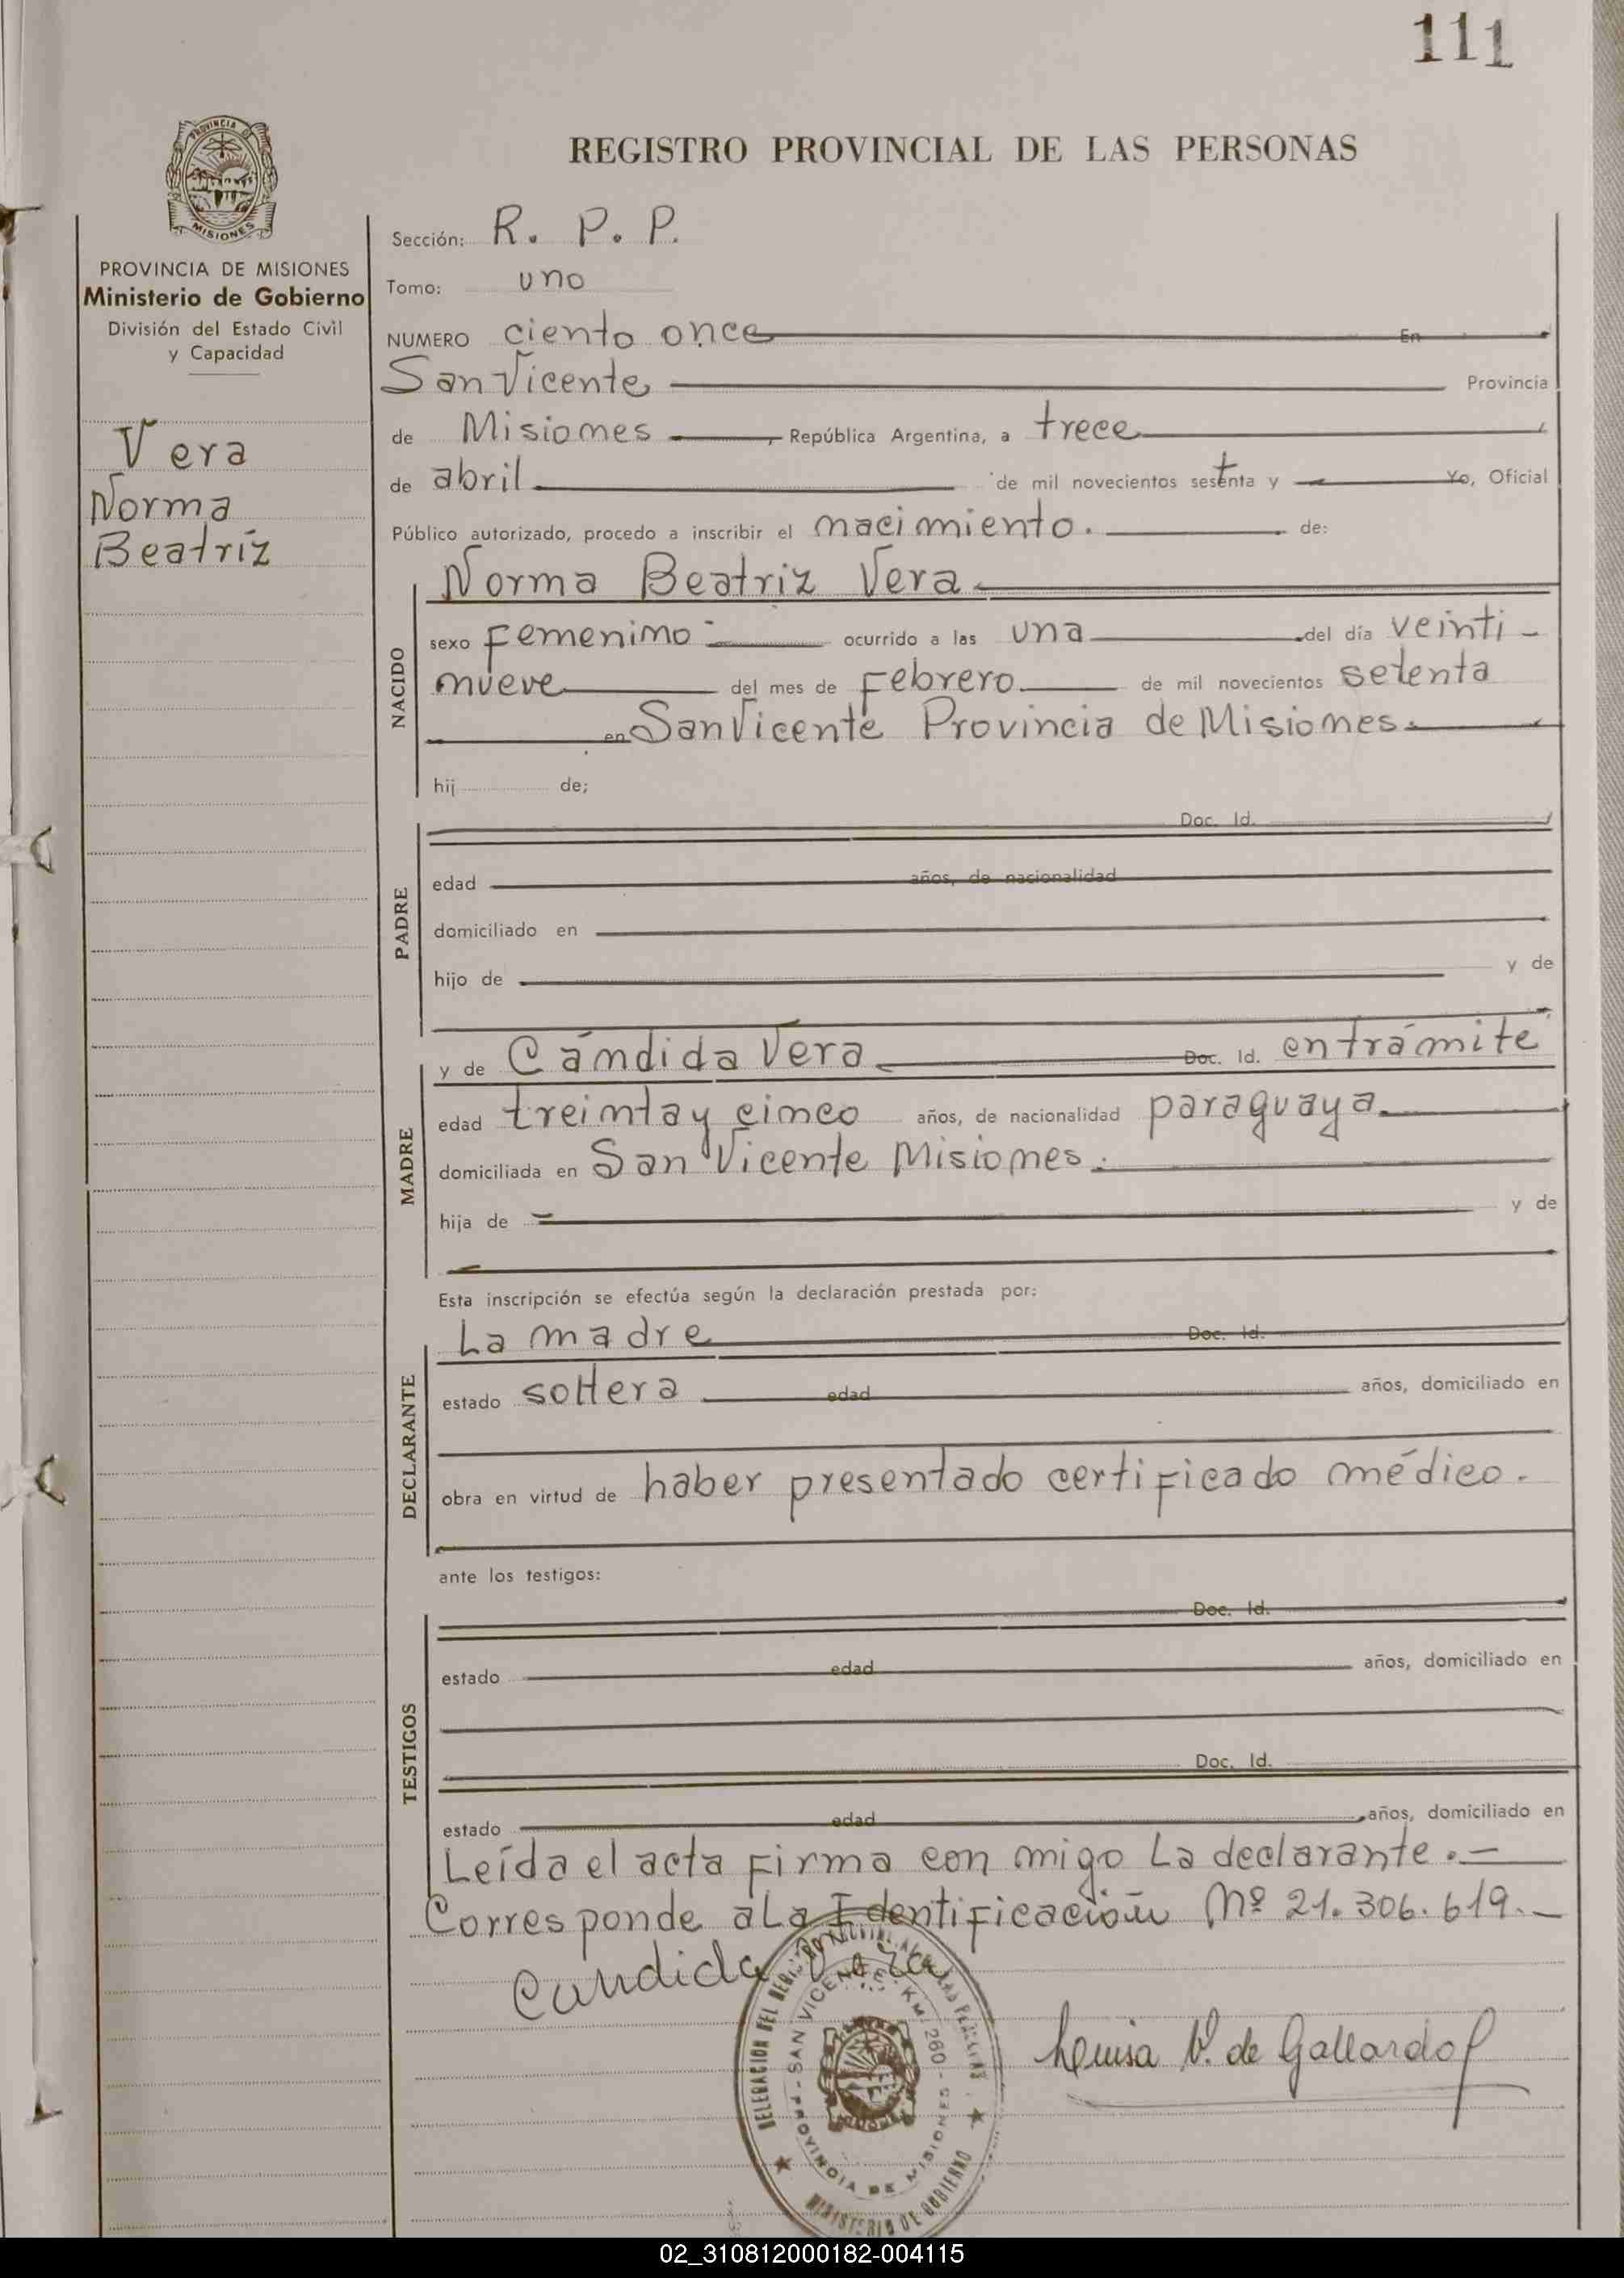 111
PROVINCIA DE
MISIONES
REGISTRO PROVINCIAL DE LAS PERSONAS
PROVINCIA DE MISIONES
Ministerio de Gobierno
División del Estado Civil
y Capacidad
Vera
Norma
Beatríz
Sección: R. P. P.
Tomo: uno
NUMERO ciento once En
San Vicente Provincia
de Misiones, República Argentina, a trece
de abril de mil novecientos sesenta y Yo, Oficial
Público autorizado, procedo a inscribir el nacimiento. de:
NACIDO
Norma Beatriz Vera
sexo Femenino ocurrido a las una del día veinti-
nueve del mes de Febrero de mil novecientos setenta
en San Vicente Provincia de Misiones.
hij de;
PADRE
Doc. Id.
edad años, de nacionalidad
domiciliado en
hijo de y de
MADRE
y de Cándida Vera Doc. Id. en trámite
edad treinta y cinco años, de nacionalidad paraguaya.
domiciliada en San Vicente Misiones.
hija de y de
Esta inscripción se efectúa según la declaración prestada por:
DECLARANTE
La madre Doc. Id.
estado soltera edad años, domiciliado en
obra en virtud de haber presentado certificado médico.
ante los testigos:
TESTIGOS
Doc. Id.
estado edad años, domiciliado en
Doc. Id.
estado edad años, domiciliado en
Leída el acta Firma con migo La declarante.-
Corresponde a La Identificación Nº 21.306.619.-
Candida Vera
Luisa V. de Gallardo
DELEGACION DEL REGISTRO PROVINCIAL DE LAS PERSONAS
SAN VICENTE - KM. 260 -
PROVINCIA DE MISIONES
MINISTERIO DE GOBIERNO
02_310812000182-004115